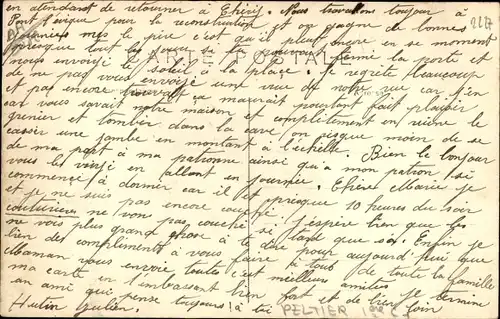 en attendant de retourner à Nous travaillons toujours à
Pont pour la reconstruction et on gagne de bonnes
journées mes le pire c'est qu'il pleut encore en se moment
presque tout les jours si tu pouvais fermé la porte et
nous envoyé le soleil à la place. Je regrette beaucoup
de ne pas vous envoyé une vue de notre rue car j'en
et pas encore trouvait sa m'aurait pourtant fait plaisir
car vous saviez notre maison et complètement en ruine le
grenier et tombier dans la cave on risque moin de se
casser une jambe en montant à l'echelle. Bien le bonjour
de ma part à ma patronne ainsi qu'a mon patron si
vous le voyé en allant en journée. Chère Marie je
commence à dormir car il et presque 10 heures du soir
et je ne suis pas encore couché j'espère bien que les
couturières ne von pas couché si tard que sa. Enfin je
ne vois plus grand chose à te dire pour aujourd'hui que
bien des compliments à vous faire à tous de toute la famille
Maman vous envoie toutes c'est meilleurs amitiés je termine
ma carte en t'embrassant bien fort et de bien loin
un ami qui pense toujours à toi
Julien.
CARTE POSTALE
PELTIER